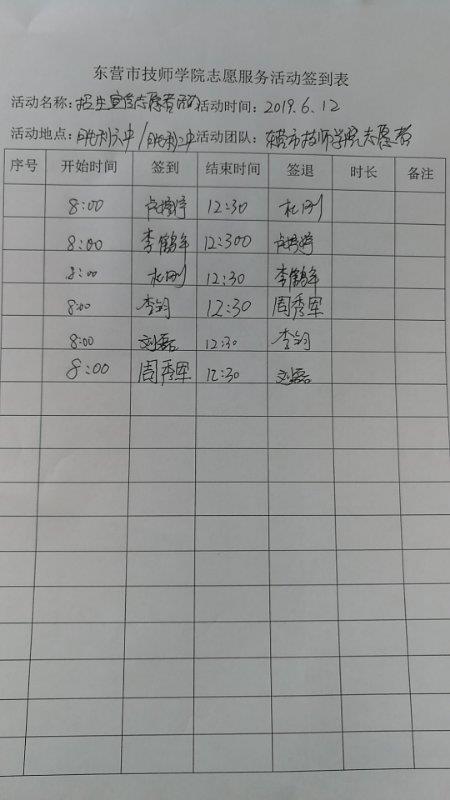 东营市技师学院志愿服务活动签到表
活动名称:招生宣传志愿者活动 活动时间:2019.6.12
活动地点:胜利六中/胜利二中 活动团队:东营市技师学院志愿者
序号 开始时间 签到 结束时间 签退 时长 备注
8:00 12:30 杜刚
8:00 李鹤年 12:300
8:00 杜刚 12:30 李鹤年
8:00 李钊 12:30 周秀军
8:00 刘磊 12:30 李钊
8:00 周秀军 12:30 刘磊